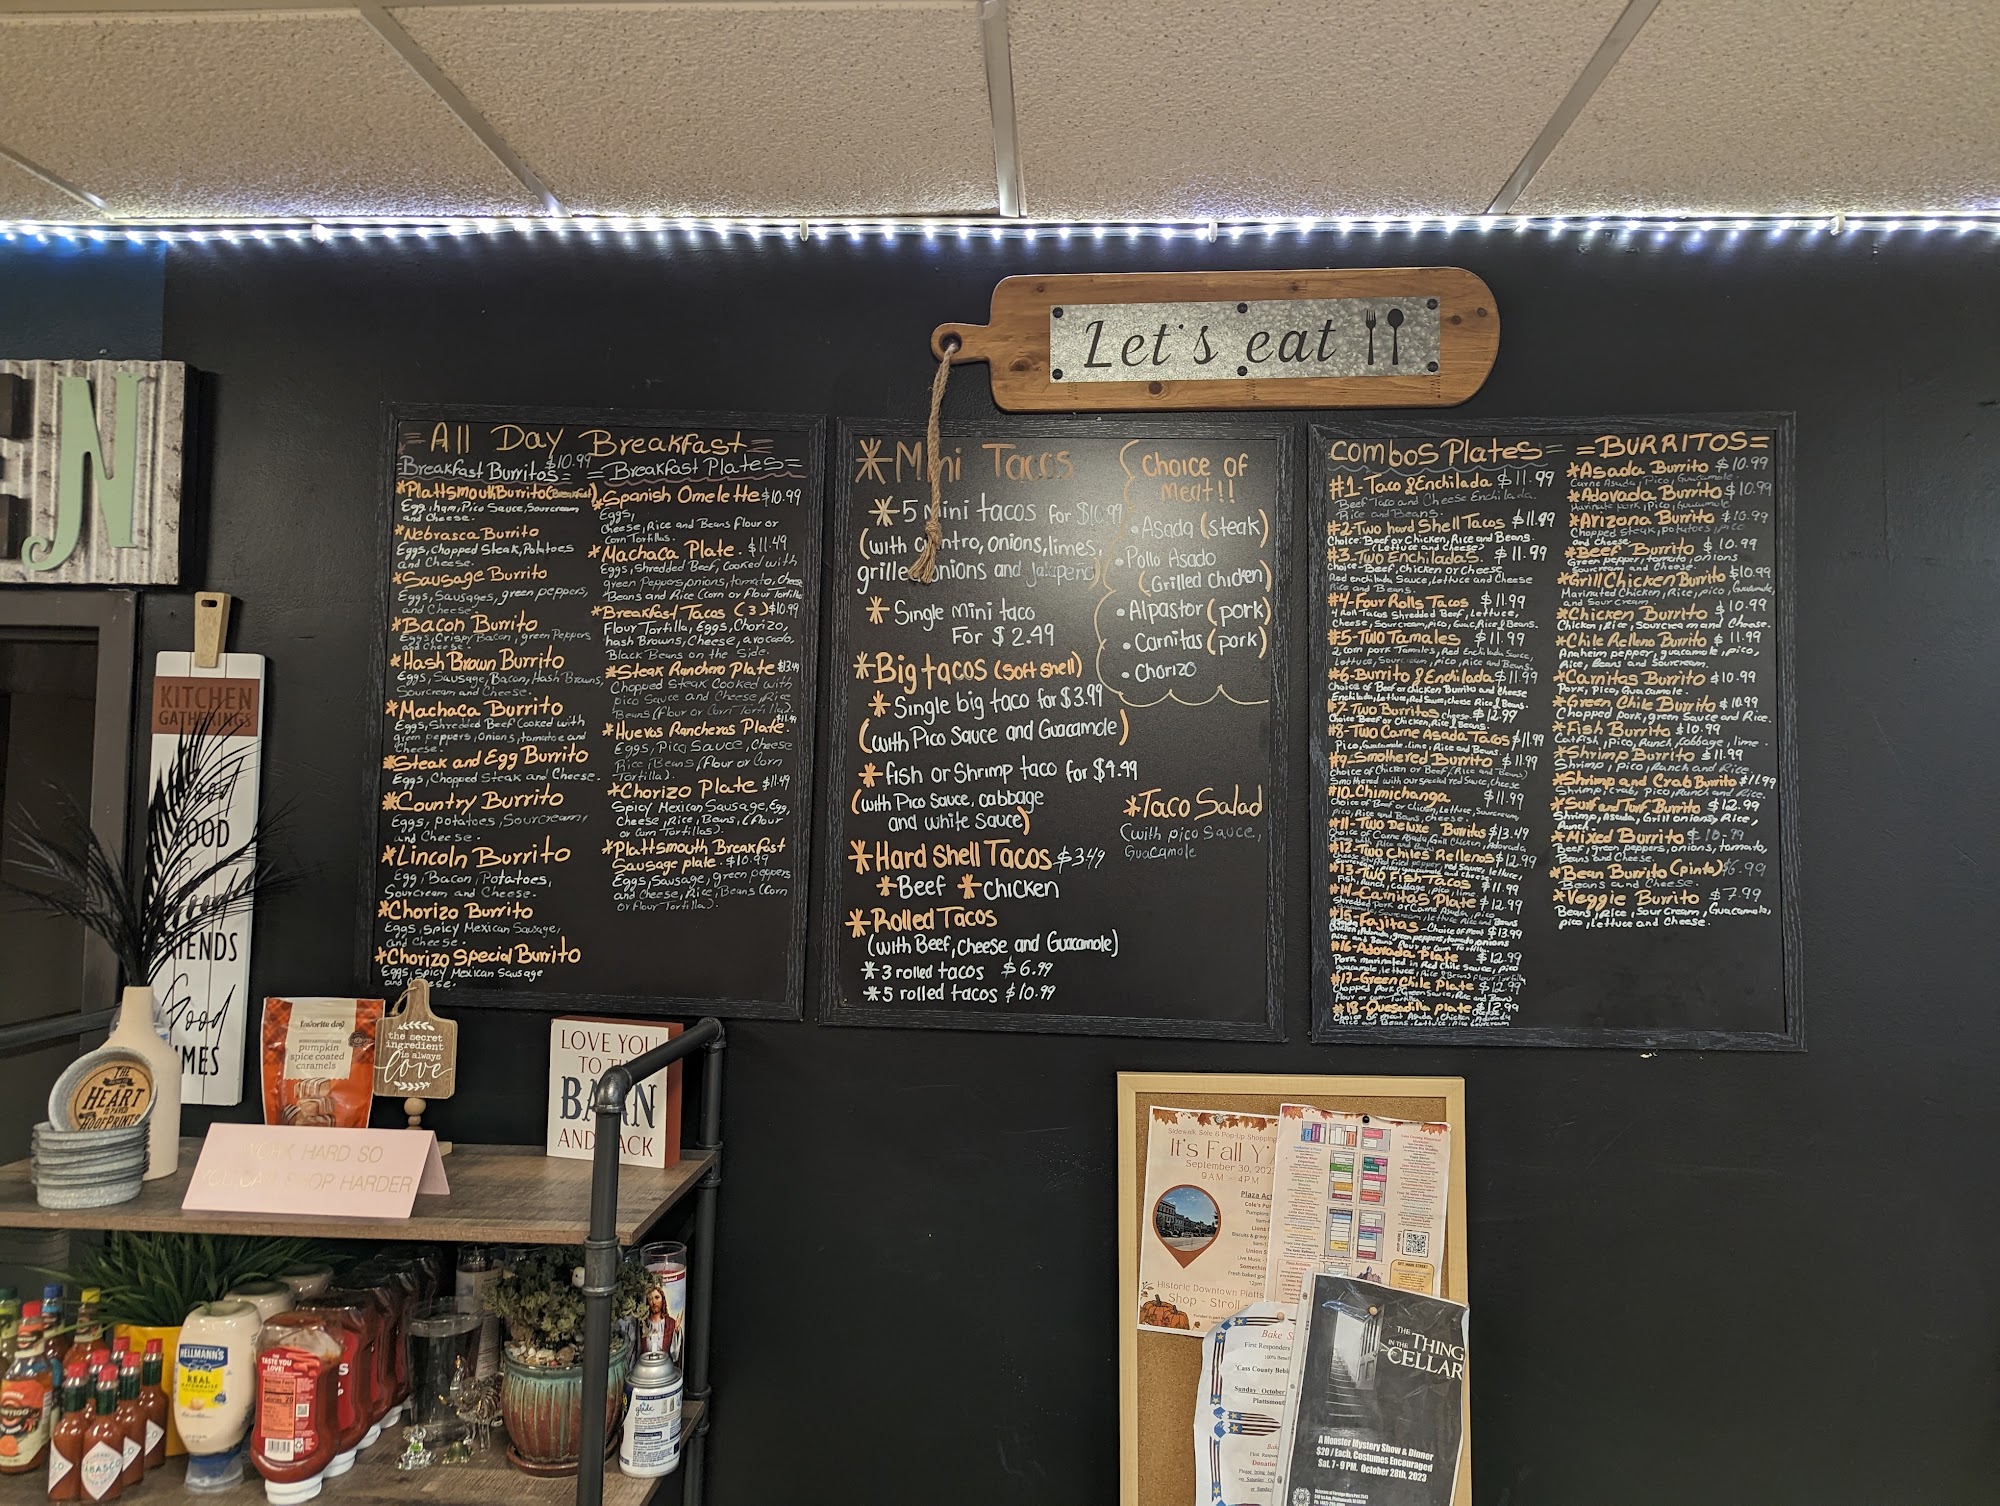 Let's eat
=All Day Breakfast=
=Breakfast Burritos= $10.99
*Plattsmouth Burrito (Breakfast)
Egg, ham, Pico Sauce, Sourcream
and Cheese.
*Nebrasca Burrito
Eggs, Chopped Steak, Potatoes
and Cheese.
*Sausage Burrito
Eggs, Sausages, green peppers,
and Cheese.
*Bacon Burrito
Eggs, Crispy Bacon, green Peppers
and Cheese.
*Hash Brown Burrito
Eggs, Sausage, Bacon, Hash Browns,
Sourcream and Cheese.
*Machaca Burrito
Eggs, Shredded Beef Cooked with
green peppers, onions, tomatoe and
Cheese.
*Steak and Egg Burrito
Eggs, Chopped Steak and Cheese.
*Country Burrito
Eggs, potatoes, Sourcream,
and Cheese.
*Lincoln Burrito
Egg, Bacon, Potatoes,
Sourcream and Cheese.
*Chorizo Burrito
Eggs, Spicy Mexican Sausage,
and Cheese.
*Chorizo Special Burrito
Eggs, Spicy Mexican Sausage
and Cheese.
=Breakfast Plates=
*Spanish Omelette $10.99
Eggs,
Cheese, Rice and Beans flour or
Corn Tortillas.
*Machaca Plate. $11.49
Eggs, Shredded Beef, Cooked with
green peppers, onions, tomato, cheese
Beans and Rice (Corn or flour Tortilla
*Breakfast Tacos (3) $10.99
Flour Tortilla, Eggs, Chorizo,
hash Browns, Cheese, avocado,
Black Beans on the Side.
*Steak Ranchero Plate $13.49
Chopped Steak Cooked with
pico Sauce and Cheese, Rice
Beans (flour or Corn Tortilla).
*Huevos Rancheros Plate. $11.49
Eggs, Pico Sauce, Cheese
Rice, Beans, (flour or Corn
Tortilla).
*Chorizo Plate $11.49
Spicy Mexican Sausage, Egg,
Cheese, Rice, Beans, (flour
or Corn Tortillas).
*Plattsmouth Breakfast
Sausage plate. $10.99
Eggs, Sausage, green peppers
and Cheese, Rice, Beans (Corn
or flour Tortilla).
*Mini Tacos
*5 mini tacos for $10.99
(with cilantro, onions, limes,
grilled onions and Jalapeño)
*Single mini taco
For $2.49
*Big tacos (Soft shell)
*Single big taco for $3.99
(with Pico Sauce and Guacamole)
*fish or Shrimp taco for $4.99
(with Pico Sauce, cabbage
and white Sauce)
*Hard Shell Tacos $3.49
*Beef *chicken
*Rolled Tacos
(with Beef, Cheese and Guacamole)
*3 rolled tacos $6.99
*5 rolled tacos $10.99
Choice of
Meat!!
•Asada (steak)
•Pollo Asado
(Grilled chicken)
•Alpastor (pork)
•Carnitas (pork)
•Chorizo
*Taco Salad
(with pico Sauce,
Guacamole
Combos Plates=
#1-Taco & Enchilada $11.99
Beef Taco and Cheese Enchilada.
Rice and Beans.
#2-Two hard Shell Tacos $11.99
Choice: Beef or Chicken, Rice and Beans.
(Lettuce and Cheese)
#3-Two Enchiladas. $11.99
Choice- Beef, Chicken or Cheese
Red enchilada Sauce, Lettuce and Cheese
Rice and Beans.
#4-Four Rolls Tacos $11.99
4 Roll Tacos Shredded Beef, Lettuce,
Cheese, Sourcream, pico, Guac, Rice & Beans.
#5-Two Tamales $11.99
2 corn pork Tamales, Red Enchilada Sauce,
Lettuce, Sourcream, pico, Rice and Beans.
#6-Burrito & Enchilada $11.99
Choice of Beef or chicken Burrito and Cheese
Enchilada, Lettuce, Red Sauce, Cheese Rice & Beans.
#7-Two Burritos Cheese. $12.99
Choice Beef or Chicken, Rice & Beans.
#8-Two Carne Asada Tacos $11.99
Pico, Guacamole, Lime, Rice and Beans.
#9-Smothered Burrito $11.99
Choice of Chicken or Beef, (Rice and Beans)
Smothered with our special red Sauce, Cheese
#10-Chimichanga $11.99
Choice of Beef or Chicken, Lettuce, Sourcream,
pico, Rice and Beans, cheese.
#11-Two Deluxe Burritos $13.49
Choice of Carne Asada, Grill Chicken, Adovada
#12-Two Chiles Rellenos $12.99
#13-Two Fish Tacos $11.99
Fish, Ranch, Cabbage, pico, lime
#14-Carnitas Plate $12.99
Shredded Pork or Carne Asada, pico
#15-Fajitas $13.99
#16-Adovada Plate $12.99
Pork marinated in Red Chile Sauce, pico
guacamole, lettuce, Rice & Beans flour Tortilla
#17-Green Chile Plate $12.99
#18-Quesadilla Plate $12.99
Choice of meat Asada, Chicken, Adovada
Rice and Beans. Lettuce, Pico Sourcream
=BURRITOS=
*Asada Burrito $10.99
Carne Asada, Pico, Guacamole.
*Adovada Burrito $10.99
Marinate pork, Pico, Guacamole
*Arizona Burrito $10.99
Chopped Steak, potatoes, pico
and Cheese.
*Beef Burrito $10.99
Green pepper, tomato, onions
Sourcream and Cheese.
*Grill Chicken Burrito $10.99
Marinated Chicken, Rice, pico, Guacamole,
and Sour Cream.
*Chicken Burrito $10.99
Chicken, Rice, Sourcream and Cheese.
*Chile Relleno Burrito $11.99
Anaheim pepper, guacamole, pico,
Rice, Beans and Sourcream.
*Carnitas Burrito $10.99
Pork, Pico, Guacamole.
*Green Chile Burrito $10.99
Chopped pork, green Sauce and Rice.
*Fish Burrito $10.99
Catfish, Pico, Ranch, Cabbage, lime.
*Shrimp Burrito $11.99
Shrimp, Pico, Ranch and Rice.
*Shrimp and Crab Burrito $11.99
Shrimp, Crab, pico, Ranch and Rice.
*Surf and Turf Burrito $12.99
Shrimp, Asada, Grill onions, Rice,
Ranch.
*Mixed Burrito $10.99
Beef, green peppers, onions, tomato,
Beans and Cheese.
*Bean Burrito (pinto) $6.99
Beans and Cheese.
*Veggie Burrito $7.99
Beans, Rice, Sour Cream, Guacamole,
pico, lettuce and Cheese.
EN
KITCHEN
GATHERINGS
Good
FOOD
Good
FRIENDS
Good
TIMES
favorite day
pumpkin
spice coated
caramels
the secret
ingredient
is always
love
LOVE YOU
TO THE
BARN
AND BACK
THE
HEART
HOOFPRINTS
WORK HARD SO
YOU CAN SHOP HARDER
HELLMANN'S
REAL
TASTE YOU
LOVE!
glade
TABASCO
Sidewalk Sale & Pop-Up Shopping
It's Fall Y'
September 30, 202
9AM - 4PM
Plaza Act
Historic Downtown Platts
Shop - Stroll
Bake S
First Responders
Sunday October
Plattsmouth
THE THING
IN THE CELLAR
A Monster Mystery Show & Dinner
$20 / Each, Costumes Encouraged
Sat. 7 - 9 PM. October 28th, 2023